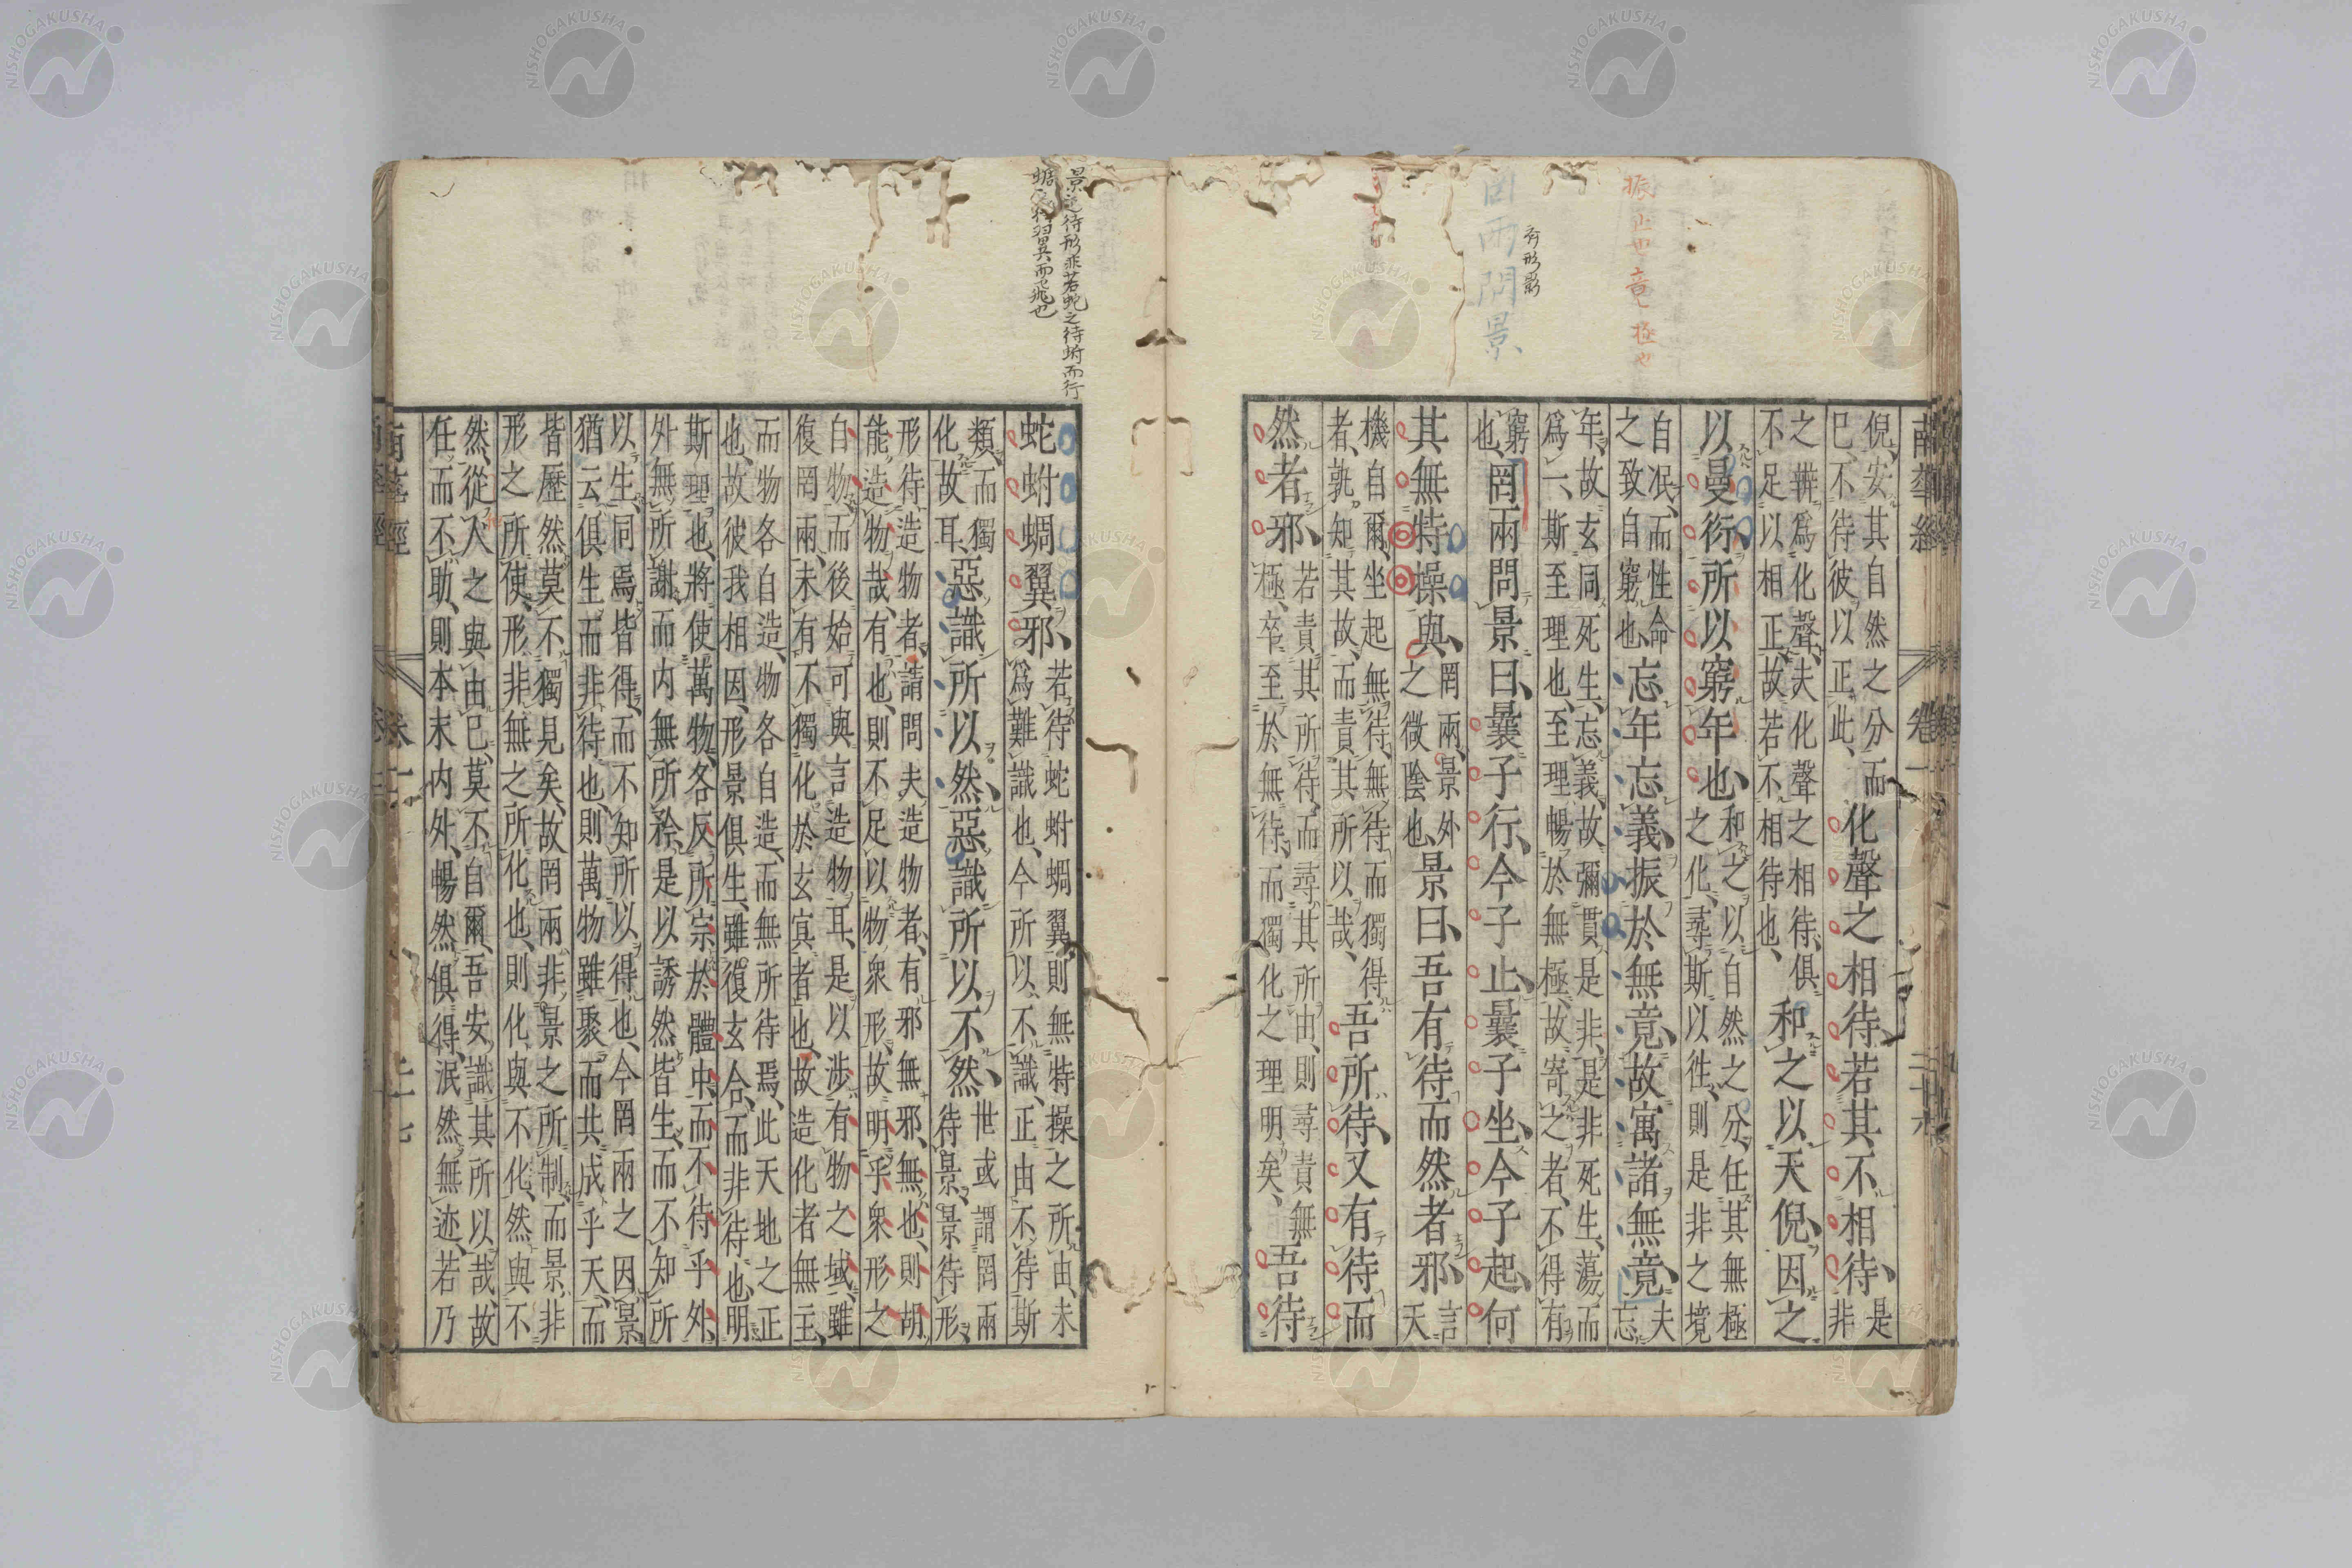 振止也竟極也
斉形影
罔兩問景
倪、安其自然之分而
已、不待彼以正此、
化聲之相待、若其不相待、
是
非
之辨爲化聲、夫化聲之相待、俱
不足以相正、故若不相待也、
和之以天倪、因之
以曼衍、所以窮年也、
和之以自然之分、任其無極
之化、尋斯以徃、則是非之境
自冺、而性命
之致自窮也、
忘年忘義、振於無竟、故寓諸無竟、
夫
忘
年、故玄同死生、忘義、故彌貫是非、是非死生、蕩而
爲一、斯至理也、至理暢於無極、故寄之者、不得有
窮
也、
罔兩問景曰、曩子行、今子止、曩子坐、今子起、何
其無特操與、
罔兩、景外
之微陰也、
景曰、吾有待而然者邪、
言
天
機自爾、坐起無待、無待而獨得
者、孰知其故、而責其所以哉、
吾所待、又有待而
然者邪、
若責其所待、而尋其所由、則尋責無
極、卒至於無待、而獨化之理明矣、
吾待
南華經 卷一 二十六
景之待形非若蛇之待蚹而行
蜩之待翼而飛也
蛇蚹蜩翼邪、
若待蛇蚹蜩翼、則無特操之所由、未
爲難識也、今所以不識、正由不待斯
類、而獨
化故耳、
惡識所以然、惡識所以不然、
世或謂罔兩
待景、景待形、
形待造物者、請問夫造物者、有邪無邪、無也、則胡
能造物哉、有也、則不足以物衆形、故明乎衆形之
自物、而後始可與言造物耳、是以涉有物之域、雖
復罔兩、未有不獨化於玄冥者也、故造化者無主、
而物各自造、物各自造、而無所待焉、此天地之正
也、故彼我相因、形景俱生、雖復玄合、而非待也、明
斯理也、將使萬物、各反所宗於體中、而不待乎外、
外無所謝、而内無所矜、是以誘然皆生、而不知所
以生、同焉皆得、而不知所以得也、今罔兩之因景、
猶云俱生、而非待也、則萬物雖聚、而共成乎天、而
皆歷然、莫不獨見矣、故罔兩非景之所制、而景非
形之所使、形非無之所化也、則化與不化、然與不
然、從人之與由己、莫不自爾、吾安識其所以哉、故
任而不助、則本末内外、暢然俱得、泯然無迹、若乃
南華經